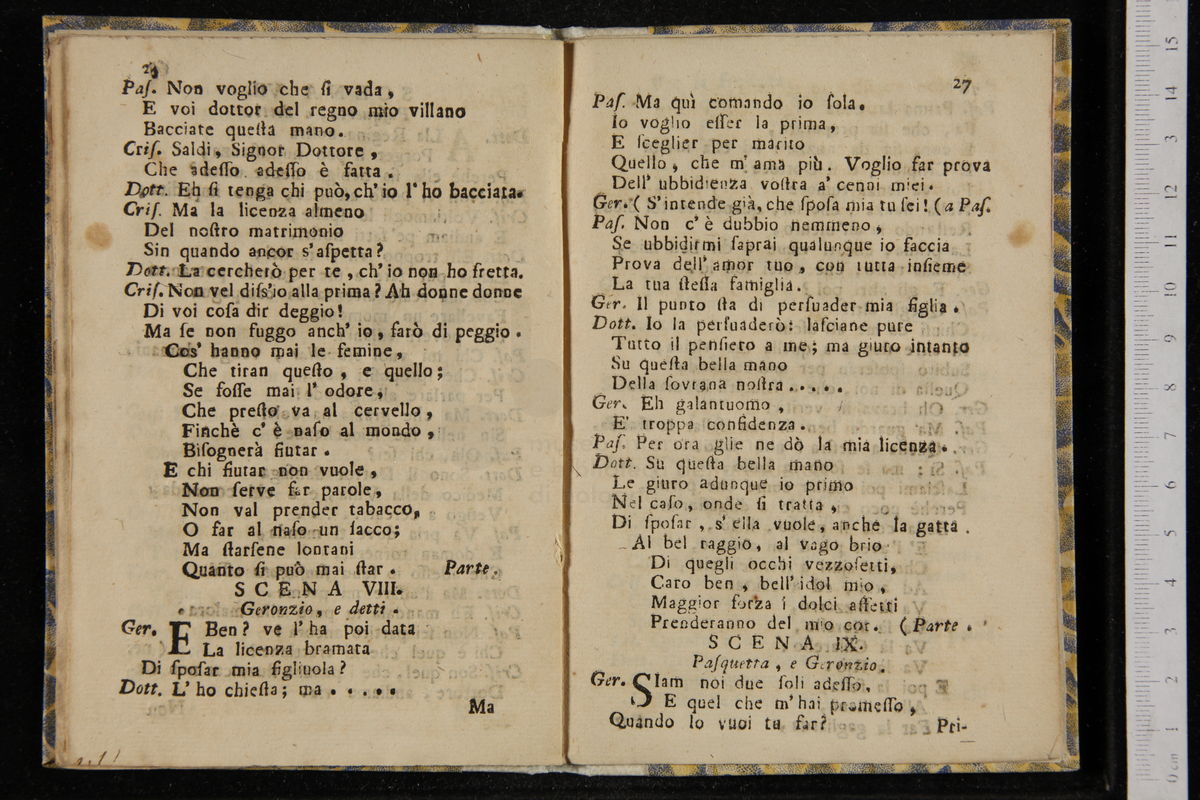 26
Paſ. Non voglio che ſi vada,
E voi dottor del regno mio villano
Bacciate queſta mano.
Criſ. Saldi, Signor Dottore,
Che adeſſo adeſſo è fatta.
Dott. Eh ſi tenga chi può, ch' io l' ho bacciata.
Criſ. Ma la licenza almeno
Del noſtro matrimonio
Sin quando ancor s' aſpetta?
Dott. La cercherò per te, ch' io non ho fretta.
Criſ. Non vel diſs' io alla prima? Ah donne donne
Di voi coſa dir deggio!
Ma ſe non fuggo anch' io, farò di peggio.
Cos' hanno mai le femine,
Che tiran queſto, e quello;
Se foſſe mai l' odore,
Che preſto va al cervello,
Finchè c' è naſo al mondo,
Biſognerà fiutar.
E chi fiutar non vuole,
Non ſerve far parole,
Non val prender tabacco,
O far al naſo un ſacco;
Ma ſtarſene lontani
Quanto ſi può mai ſtar. Parte.
SCENA VIII.
Geronzio, e detti.
Ger. E Ben? ve l' ha poi data
La licenza bramata
Di ſpoſar mia figliuola?
Dott. L' ho chieſta; ma . . . . .
Ma
27
Paſ. Ma quì comando io ſola.
Io voglio eſſer la prima,
E ſceglier per marito
Quello, che m' ama più. Voglio far prova
Dell' ubbidienza voſtra a' cenni miei.
Ger. ( S' intende già, che ſpoſa mia tu ſei! (a Paſ.
Paſ. Non c' è dubbio nemmeno,
Se ubbidirmi ſaprai qualunque io faccia
Prova dell' amor tuo, con tutta inſieme
La tua ſteſſa famiglia.
Ger. Il punto ſta di perſuader mia figlia.
Dott. Io la perſuaderò: laſciane pure
Tutto il penſiero a me; ma giuro intanto
Su queſta bella mano
Della ſovrana noſtra . . . . .
Ger. Eh galantuomo,
E' troppa confidenza.
Paſ. Per ora glie ne dò la mia licenza.
Dott. Su queſta bella mano
Le giuro adunque io primo
Nel caſo, onde ſi tratta,
Di ſpoſar, s' ella vuole, anche la gatta.
Al bel raggio, al vago brio
Di quegli occhi vezzoſetti,
Caro ben, bell' idol mio,
Maggior forza i dolci affetti
Prenderanno del mio cor. (Parte.
SCENA IX.
Paſquetta, e Geronzio.
Ger. SIam noi due ſoli adeſſo.
E quel che m' hai promeſſo,
Quando lo vuoi tu far?
Pri-